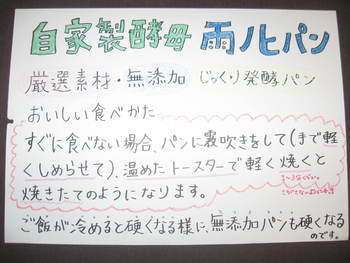 自家製酵母 雨ノヒパン
厳選素材・無添加 じっくり発酵パン
おいしい食べかた
すぐに食べない場合、パンに霧吹きをして(手で軽
くしめらせて)、温めたトースターで軽く焼くと
焼きたてのようになります。
ご飯が冷めると硬くなる様に、無添加パンも硬くなる
のです。